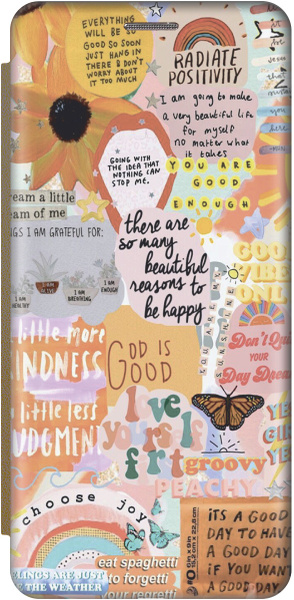 EVERYTHING
WILL BE
SO
GOOD SO SOON
JUST HANG IN
THERE & DON'T
WORRY ABOUT
IT TOO MUCH
RADIATE
POSITIVITY
I am going to make
a very beautiful life
for myself
no matter what
it takes
GOING WITH
THE IDEA THAT
NOTHING CAN
STOP ME.
YOU ARE
GOOD
ENOUGH
ream a little
eam of me
GS I AM GRATEFUL FOR:
I AM
ALIVE
I AM
HEALTHY
I AM
BREATHING
I AM
ENOUGH
there are
so many
beautiful
reasons to
be happy
GOOD
VIBE
ONL
little more
INDNESS
little less
UDGMENT
GOD IS
GOOD
SUNSHINE
Don't Qui
YOUR
Day Dream
love
yourself
frt
groovy
PEACHY
choose joy
LINGS ARE JUST
E THE WEATHER
eat spaghetti
to forgetti
your regretti
iTS A GOOD
DAY TO HAVE
A GOOD DAY
iF YOU WANT
A GOOD DAY